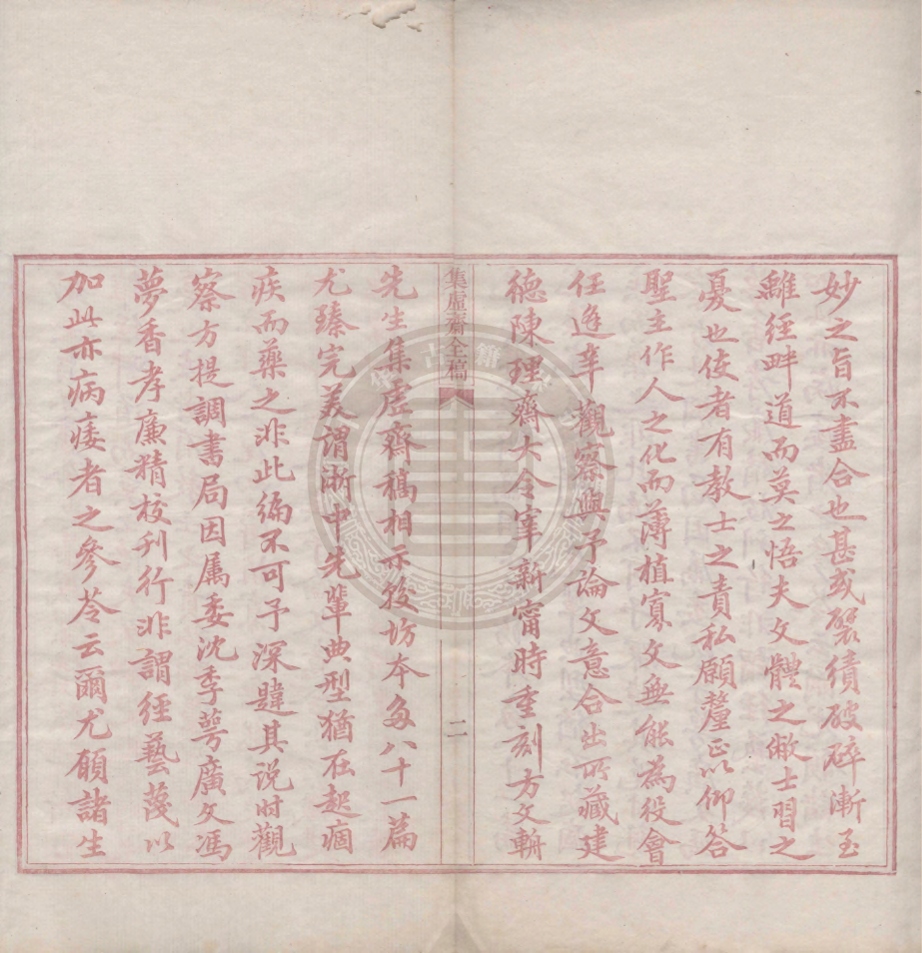 妙之旨不盡合也甚或襞績破碎漸至
離經畔道而莫之悟夫文體之敝士習之
憂也使者有教士之責私願釐正以仰答
聖主作人之化而薄植寡文無能為役會
任逢辛觀察與予論文意合出所藏建
德陳理齋大令宰新甯時重刻方文輈
集虛齋全稿
二
先生集虛齋稿相示較坊本多八十一篇
尤臻完美謂浙中先輩典型猶在起痼
疾而藥之非此編不可予深韙其說时觀
察方提調書局因属委沈季蕚廣文馮
夢香孝廉精校刋行非謂經藝蔑以
加此亦病痿者之參苓云爾尤願諸生